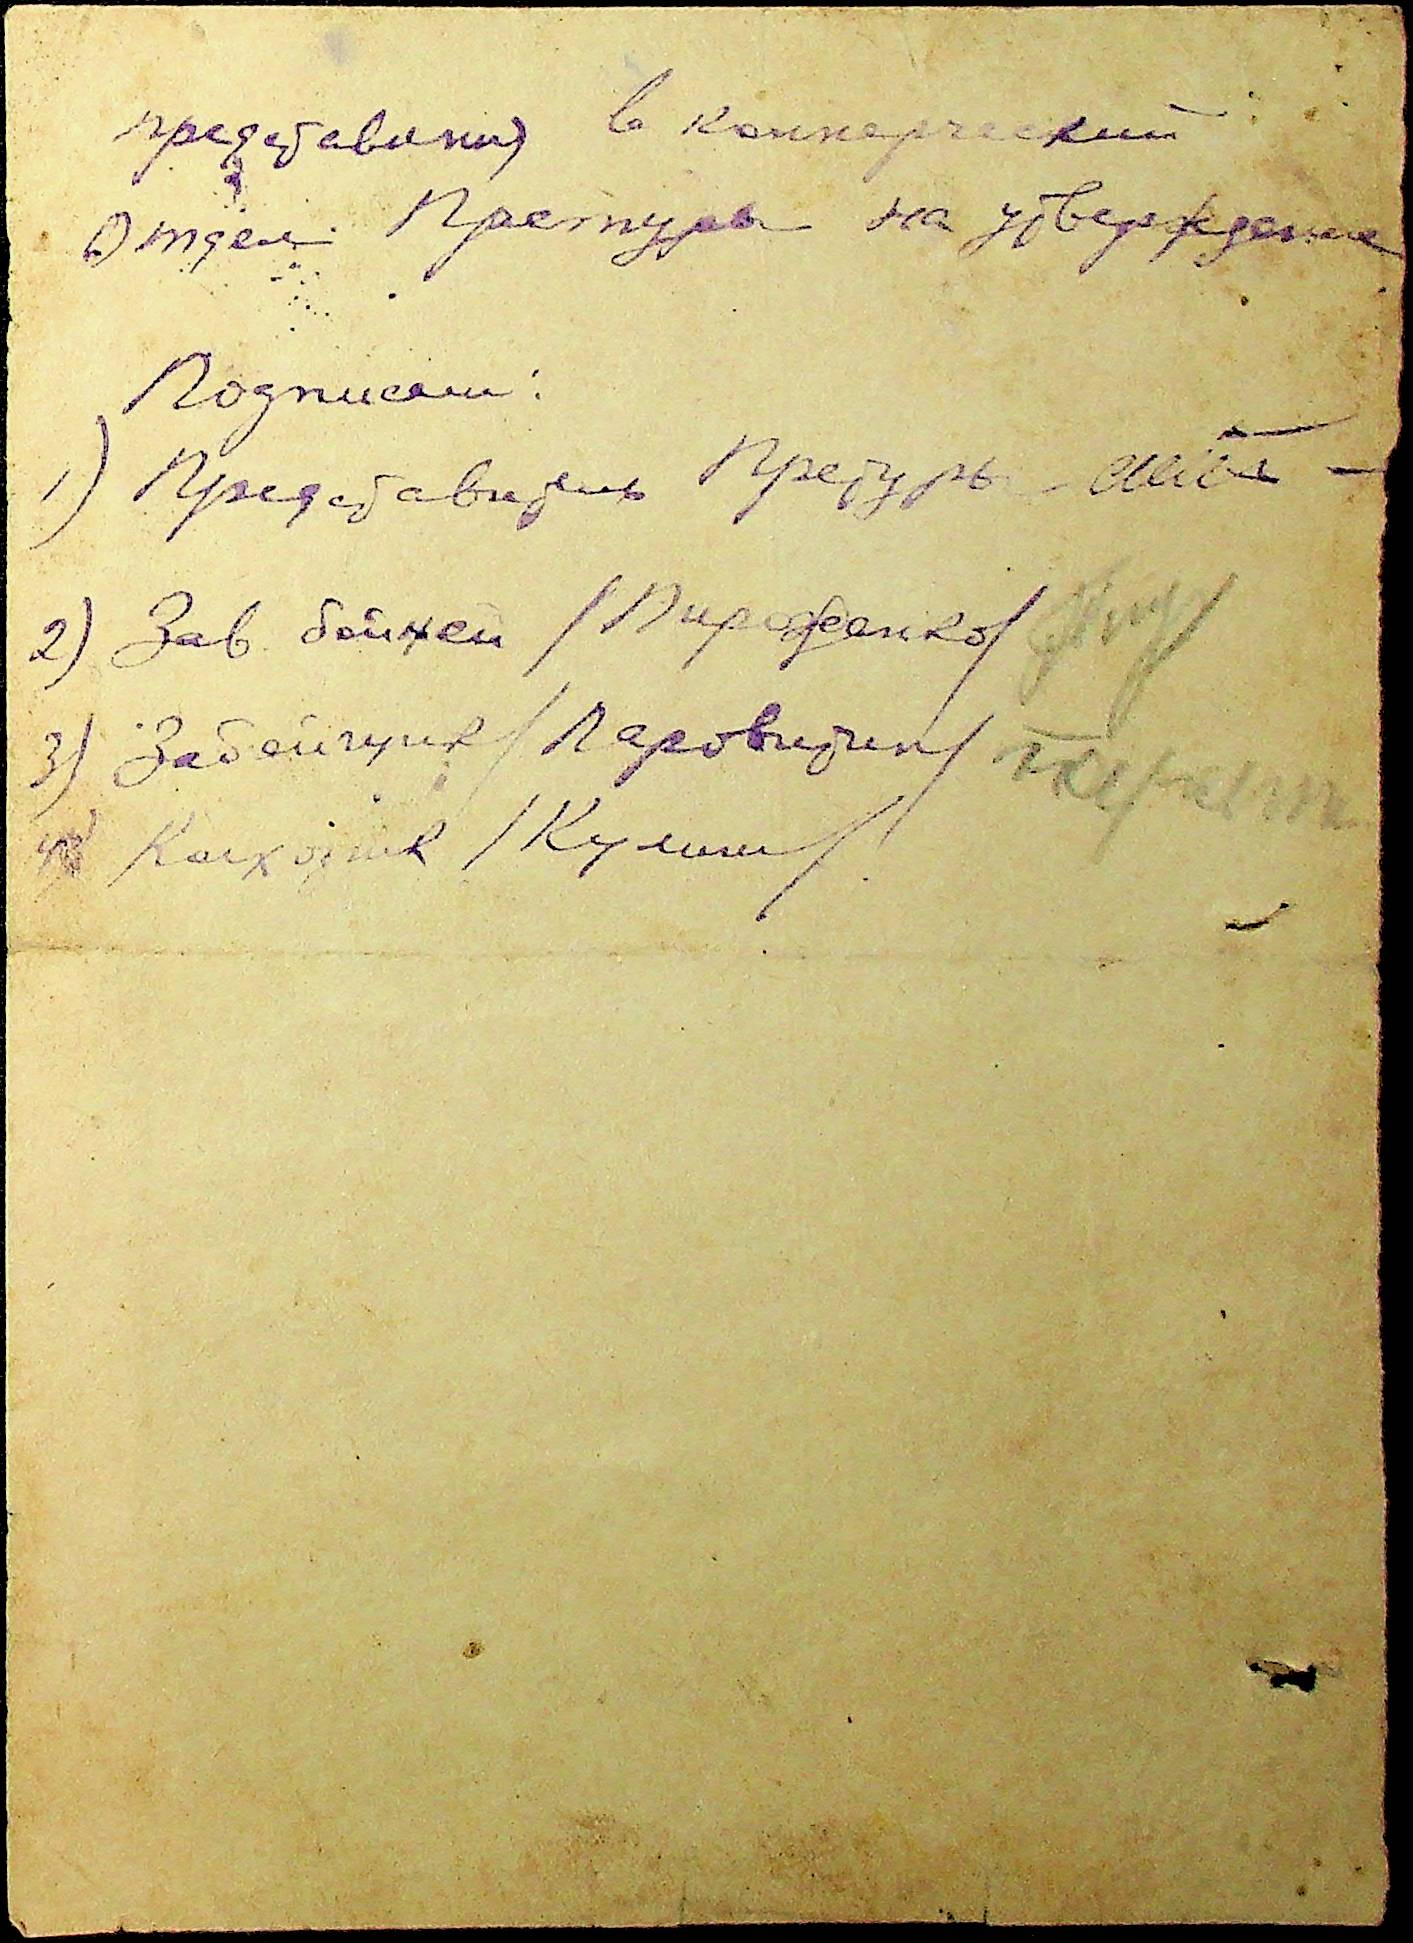 представить в коммерческий
Отдел Претуры на утверждение
Подписали:
1) Представитель Претуры -
2) Зав бойней /Пироженко/
3) Забойщик /Паровитин/
4) Колхозник /Кулиш/